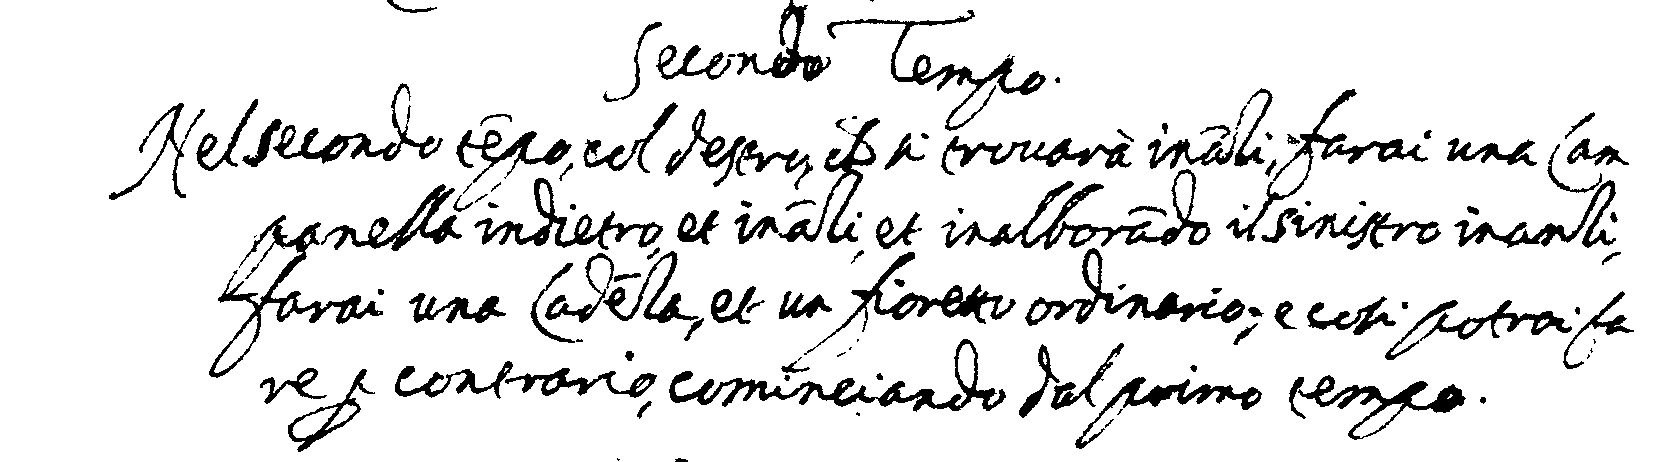 Secondo Tempo.
Nel secondo tẽpo, col destro, ch̃ si trouarà inãzi, farai una Cam
panella indietro, et inãzi, et inalborãdo il sinistro inanzi,
farai una Cadẽza, et un fioretto ordinario; e cosi potrai fa
re ꝑ contrario, cominciando dal primo tempo.